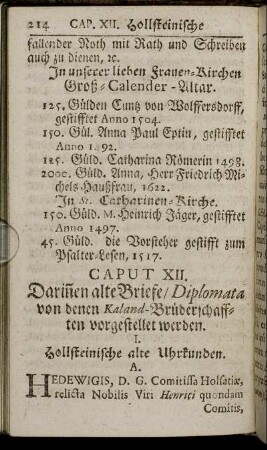 214 CAP. XII. Hollsteinische
fallender Noth mit Rath und Schreiben
auch zu dienen, ꝛc.
In unserer lieben Frauen-Kirchen
Groß-Calender-Altar.
125. Gülden Cuntz von Wolffersdorff,
gestifftet Anno 1504.
150. Gül. Anna Paul Eptin, gestifftet
Anno 1 92.
125. Güld. Catharina Römerin 1498.
2000. Güld. Anna, Herr Friedrich Mi-
chels Haußfrau, 1622.
In St. Catharinen-Kirche.
150. Güld. M. Heinrich Jäger, gestifftet
Anno 1497.
45. Güld. die Vorsteher gestifft zum
Psalter-Lesen, 1517.
CAPUT XII.
Dariñen alte Briefe/ Diplomata
von denen Kaland-Brüderschaff-
ten vorgestellet werden.
I.
Hollsteinische alte Uhrkunden.
A.
HEDEWIGIS, D. G. Comitissa Holsatiæ,
relicta Nobilis Viri Henrici quondam
Comitis,